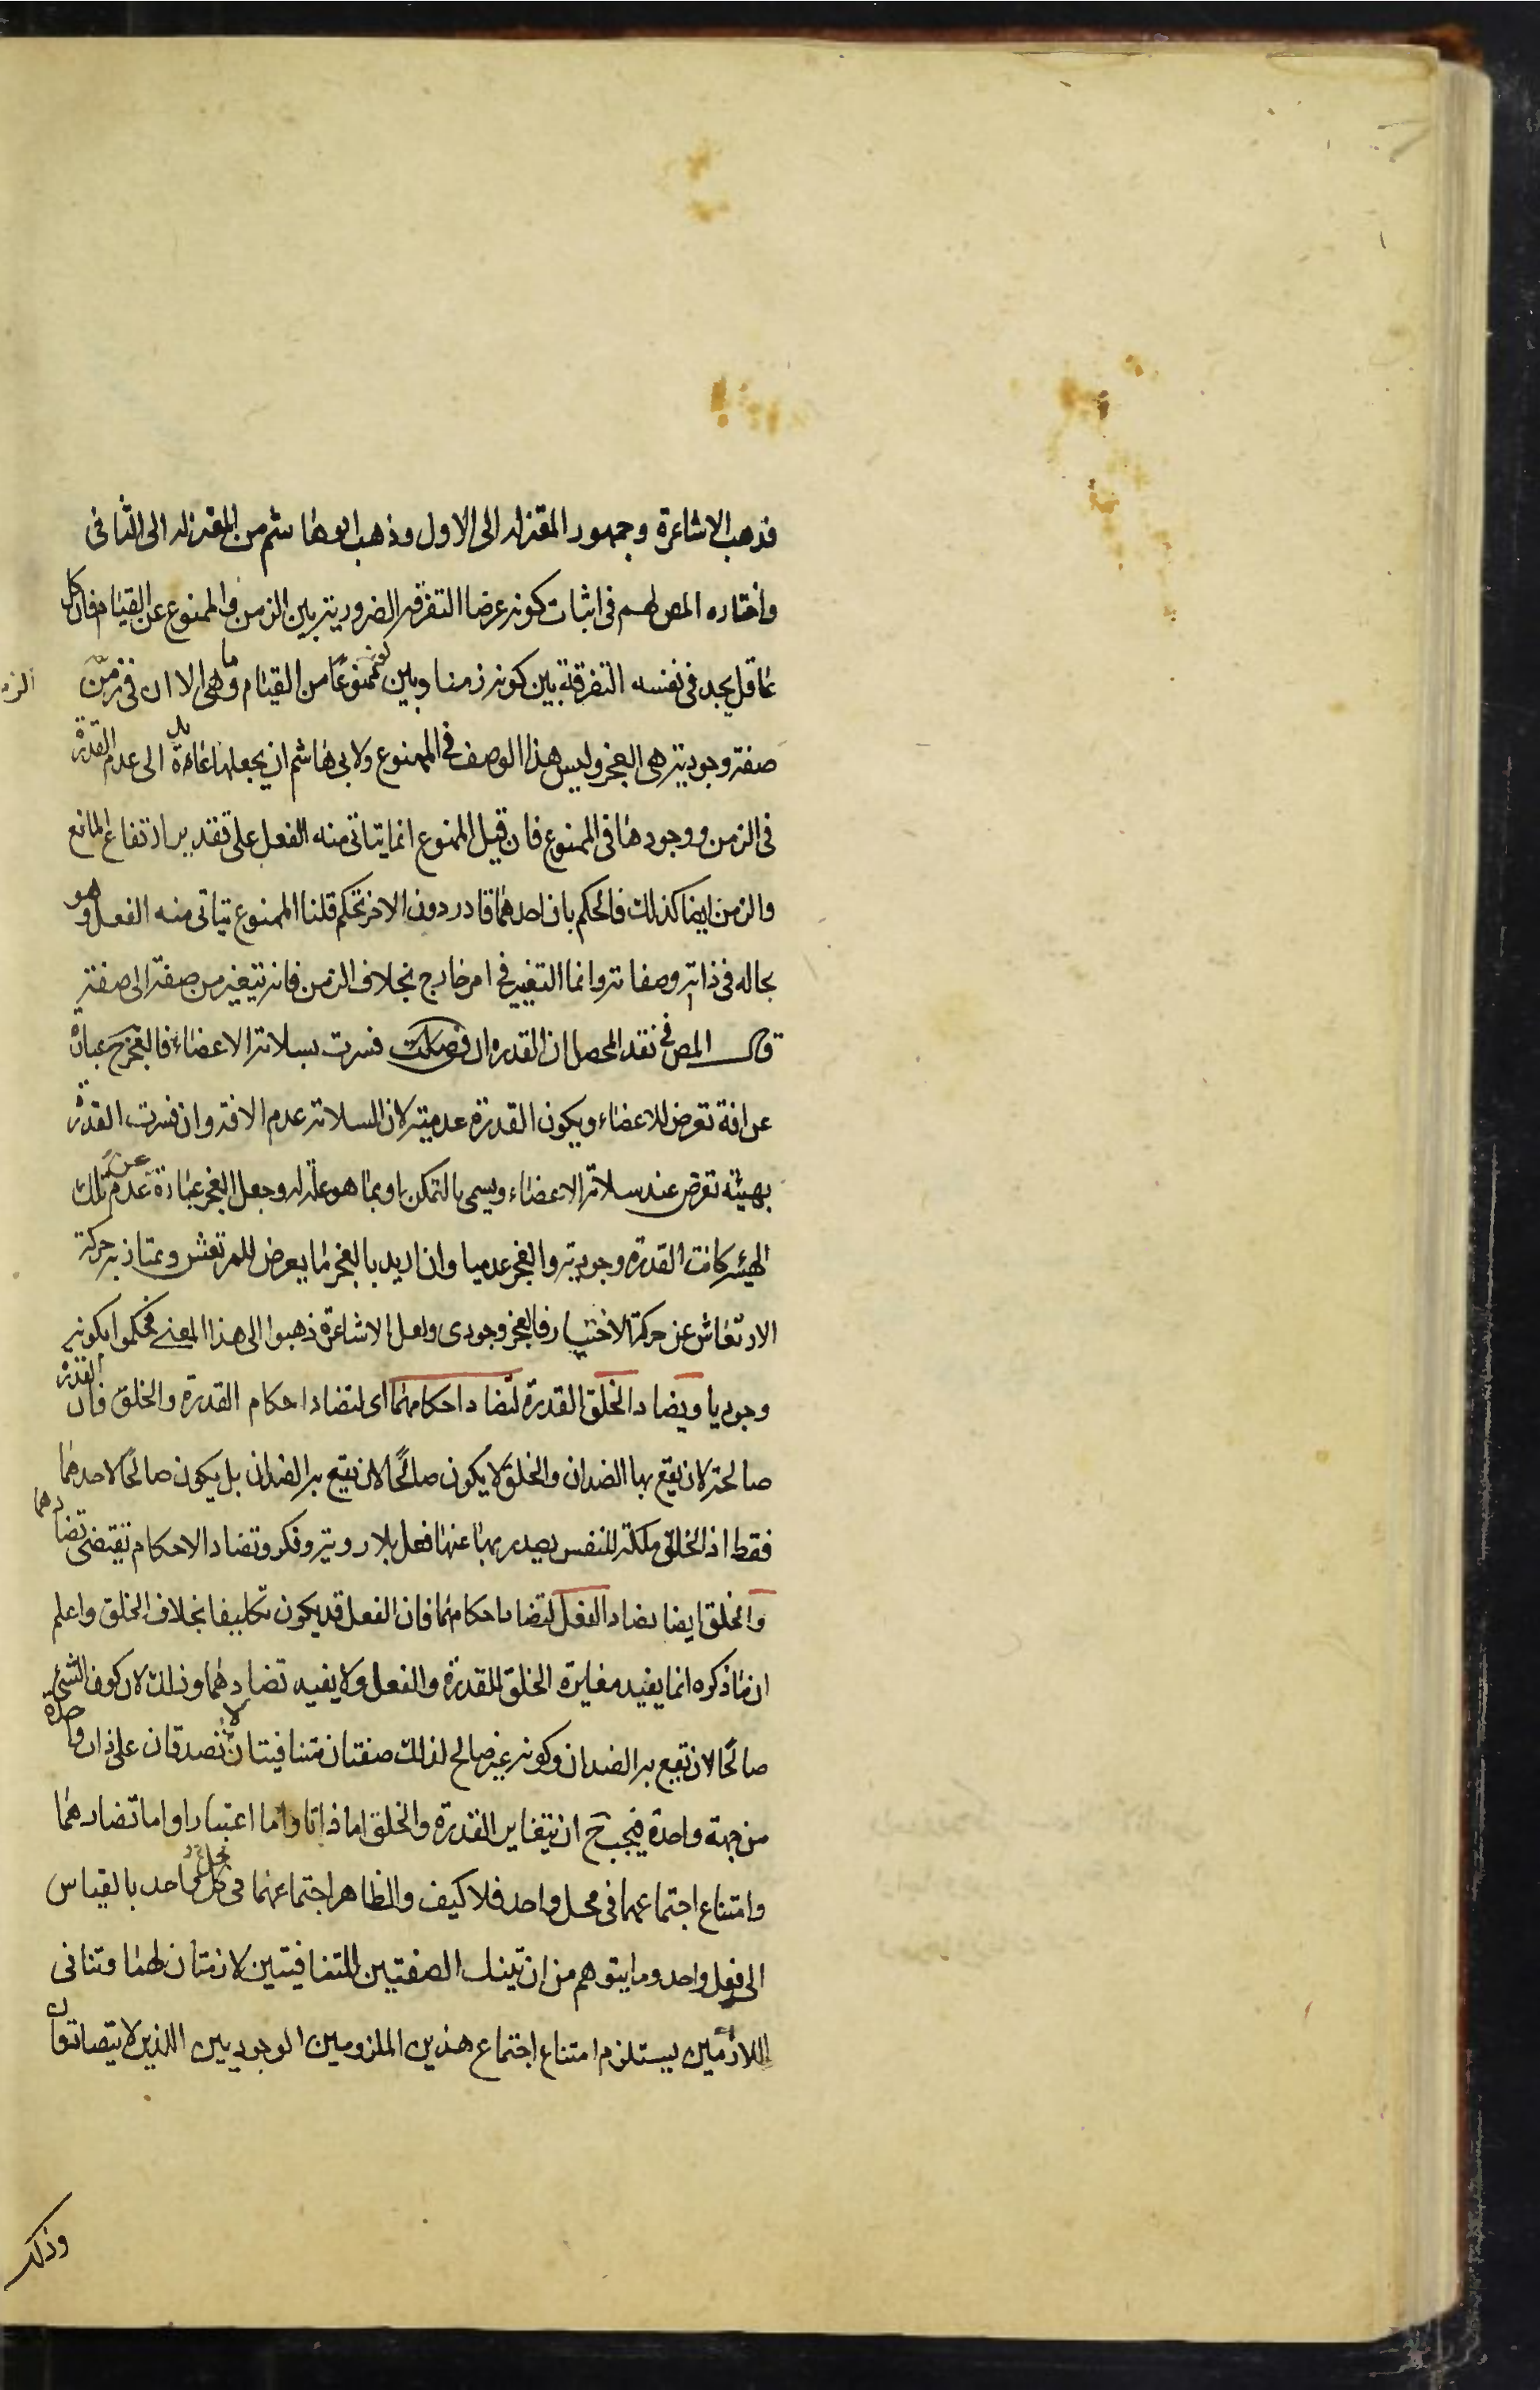 فذهب الاشاعرة وجمهور المعتزله الى الاول وذهب ابوهاشم من المعتزله الى الثانى
واختاره المص لهم فى اثبات كونه عرضا التفرقه الضروريته بين الزمن والممنوع عن القيام فان كل
عاقل يجد فى نفسه التفرقة بين كونه زمنا وبين كونه ممنوعا من القيام وما هى الا ان فى زمن
الزمن
صفة وجوديته هى العجز وليس هذا الوصف فى الممنوع ولابى هاشم ان يجعلها عائدة الى عدم القدرة
فى الزمن ووجودها فى الممنوع فان قيل الممنوع انما يتاتى منه الفعل على تقدير ارتفاع المانع
والزمن ايضا كذلك فالحكم بان احدهما قادر دون الاخر تحكم قلنا الممنوع يتاتى منه الفعل وهو
بحاله فى ذاته وصفاته وانما التغيير فى امر خارج بخلاف الزمن فانه يتغير من صفة الى صفة
قال المص فى نقد المحصل ان القدره ان فسرت بسلامة الاعضاء فالعجز ح عبارة
عن افة تعرض للاعضاء ويكون القدرة عدمية لان السلامة عدم الافة وان فسرت القدرة
بهيئة تعرض عند سلامة الاعضاء ويسمى بالتمكن او بما هو علة له وجعل العجز عبارة عن عدم تلك
الهيئة كانت القدرة وجودية والعجز عدميا وان اريد بالعجز ما يعرض للمرتعش ويمتاز به حركة
الارتعاش عن حركة الاختيار فالعجز وجودى ولعل الاشاعرة ذهبوا الى هذا المعنى فحكموا بكونه
وجوديا ويضاد الخلق القدرة لتضاد احكامهما اى لتضاد احكام القدرة والخلق فان القدرة
صالحة لان يقع بها الضدان والخلق لا يكون صالحا لان يقع به الضدان بل يكون صالحا لاحدهما
فقط اذ الخلق ملكة للنفس يصدر بها عنها فعل بلا روية وفكر وتضاد الاحكام تقتضى تضادهما
والخلق ايضا يضاد الفعل لتضاد احكامهما فان الفعل قد يكون تكليفا بخلاف الخلق واعلم
ان ما ذكره انما يفيد مغايرة الخلق للقدرة والفعل ولا يفيد تضادهما وذلك لان كون الشئ
صالحا لان يقع به الضدان وكونه غير صالح لذلك صفتان متنافيتان لا تصدقان على ذات واحدة
من جهة واحدة فيجب ح ان يتغاير القدرة والخلق اما ذاتا واما اعتبارا واما تضادهما
وامتناع اجتماعهما فى محل واحد فلا كيف والظاهر اجتماعهما فى محل واحد بالقياس
الى فعل واحد وما يتوهم من ان تينك الصفتين المتنافيتين لازمتان لهما وتنافى
اللازمين يستلزم امتناع اجتماع هذين الملزومين الوجوديين اللذين لا يتصادقان
وذلك